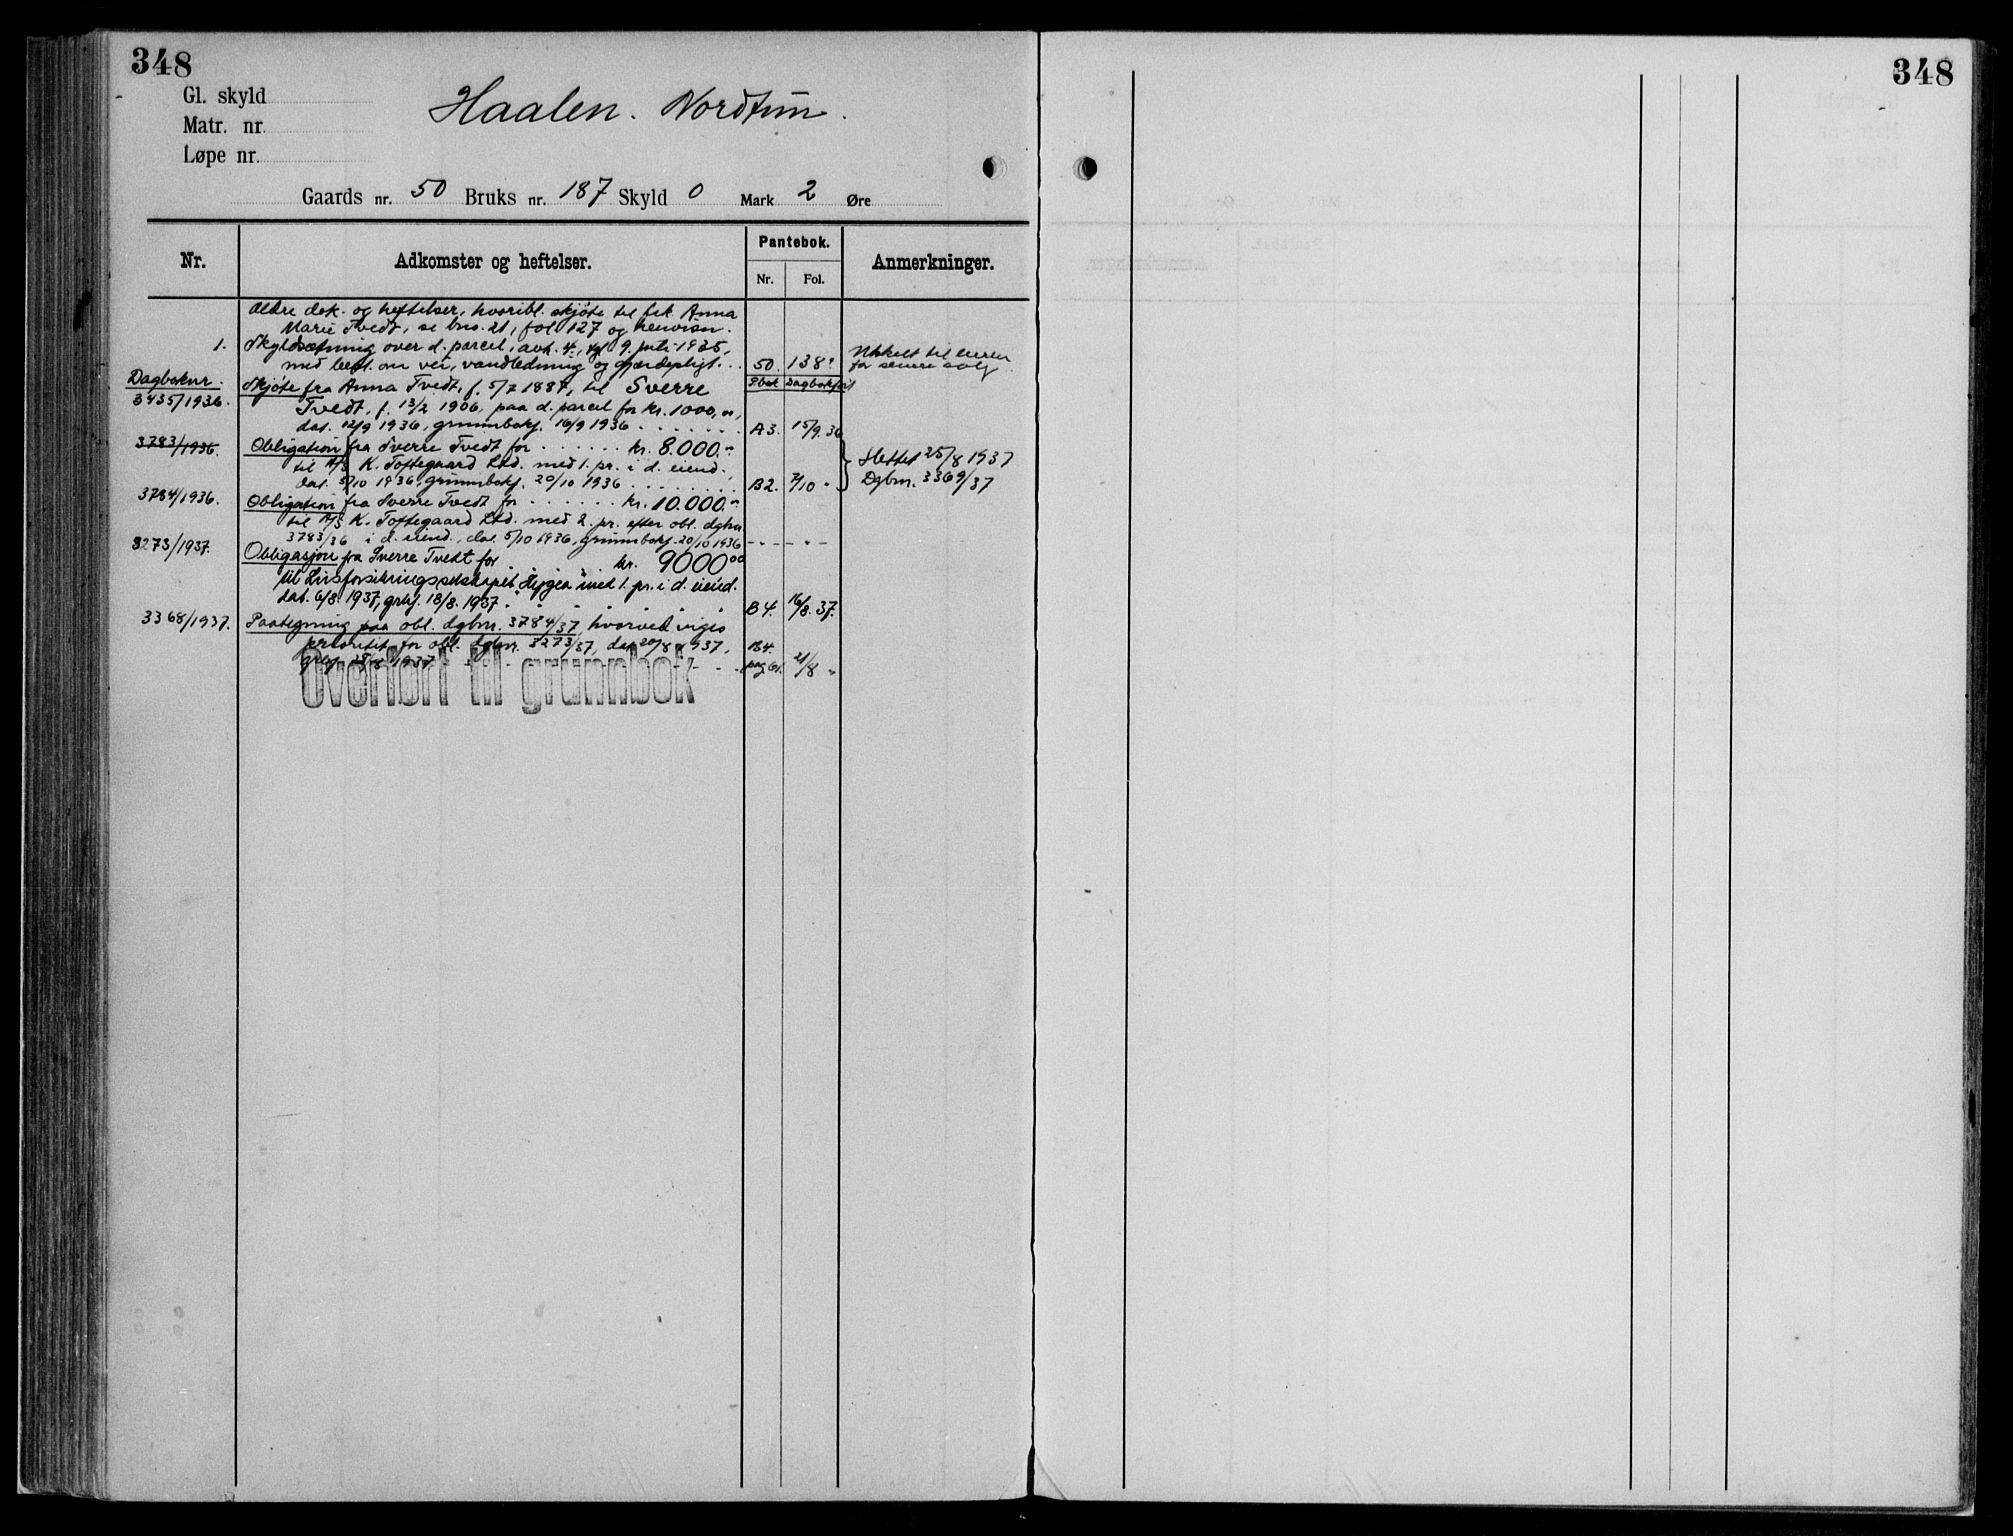 348
348
Gl. skyld
Haalen. Nordtun.
Matr. nr.
Løpe nr.
Gaards nr. 50 Bruks nr. 187 Skyld 0 Mark 2 Øre
Nr.
Adkomster og heftelser.
Pantebok.
Nr. Fol.
Anmerkninger.
Ældre dok. og heftelser, hvoribl. skjøte til frk. Anna
Marie Tvedt, se bno. 21, fol. 127 og henvisn.
1. Skyldsætning over d. parcel, avh. 4, tgl. 9. juli 1935,
med best. om vei, vandledning og gjærdepligt. 50. 138
Utskilt til eieren for senere salg
Dagboknr. Pbok Dagbokført
Skjøte fra Anna Tvedt, f. 5/7 1887, til Sverre
3435/1936. Tvedt, f. 13/2 1906, paa d. parcel for kr. 1000,00,
dat. 12/9 1936, grunnbokf. 16/9 1936 A3. 15/9. 36
3783/1936. Obligation fra Sverre Tvedt for kr. 8.000.-
til A/S K. Toftegaard Ltd. med 1. pr. i d. eiend.
dat. 5/10 1936, grunnbokf. 20/10 1936 B2. 7/10 "
Slettet 25/8 1937
Dgbnr. 3369/37
3784/1936. Obligation fra Sverre Tvedt for kr. 10.000.-
til A/S K. Toftegaard Ltd. med 2. pr. efter obl. dgbnr.
3783/36 i d. eiend., dat. 5/10 1936, grunnbokf. 20/10 1936 - - - " -
3273/1937. Obligasjon fra Sverre Tvedt for kr. 9000 00
til Livsforsikringsselskapet "Hygea" med 1. pr. i d. eiend.
dat. 6/8. 1937, grbf. 18/8. 1937 B4. 16/8. 37.
3368/1937. Paategning paa obl. dgbnr. 3784/37, hvorved viges
prioritet for obl. dgbnr. 3273/37, dat. 20/8 1937,
grbf. 25/8 1937 B4. pag 61. 21/8 "
Overført til grunnbok